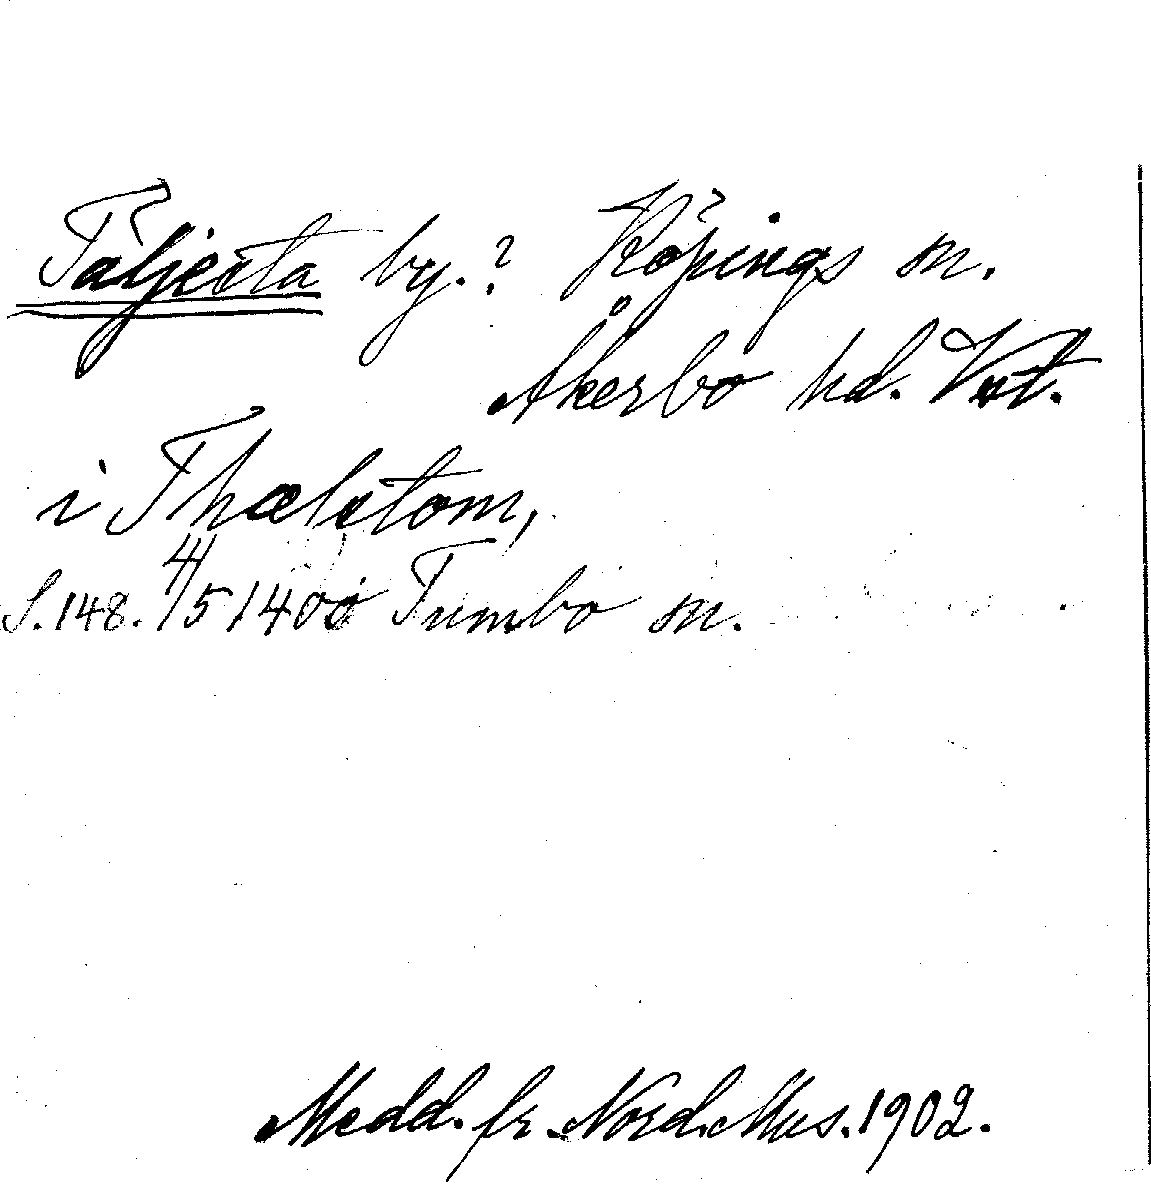 Täljesta by.? Köpings sn.
Åkerbo hd. Vstl.
i Thælstom,
S.148. 4/5 1400 Tumbo sn.
Medd. fr. Nord. Mus. 1902.